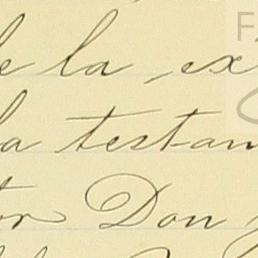 de la ex
la testam
tor Don